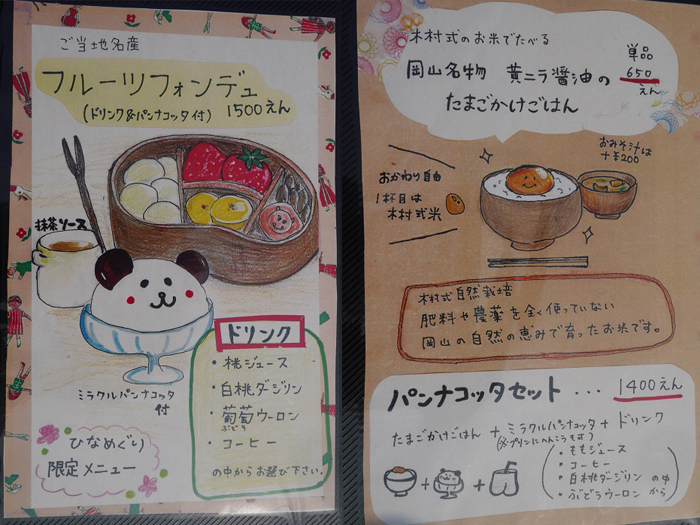 ご当地名産
フルーツフォンデュ
(ドリンク&パンナコッタ付) 1500えん
抹茶ソース
ミラクルパンナコッタ
付
ひなめぐり
限定メニュー
ドリンク
・桃ジュース
・白桃ダージリン
・葡萄ウーロン
ぶどう
・コーヒー
の中からお選び下さい。
木村式のお米でたべる
岡山名物 黄ニラ醤油の
たまごかけごはん
単品
650
えん
おかわり自由
1杯目は
木村式米
おみそ汁は
+¥200
木村式自然栽培
肥料や農薬を全く使っていない
岡山の自然の恵みで育ったお米です。
パンナコッタセット... 1400えん
たまごかけごはん + ミラクルパンナコッタ + ドリンク
・ももジュース
・コーヒー
・白桃ダージリン の中
・ぶどうウーロン から